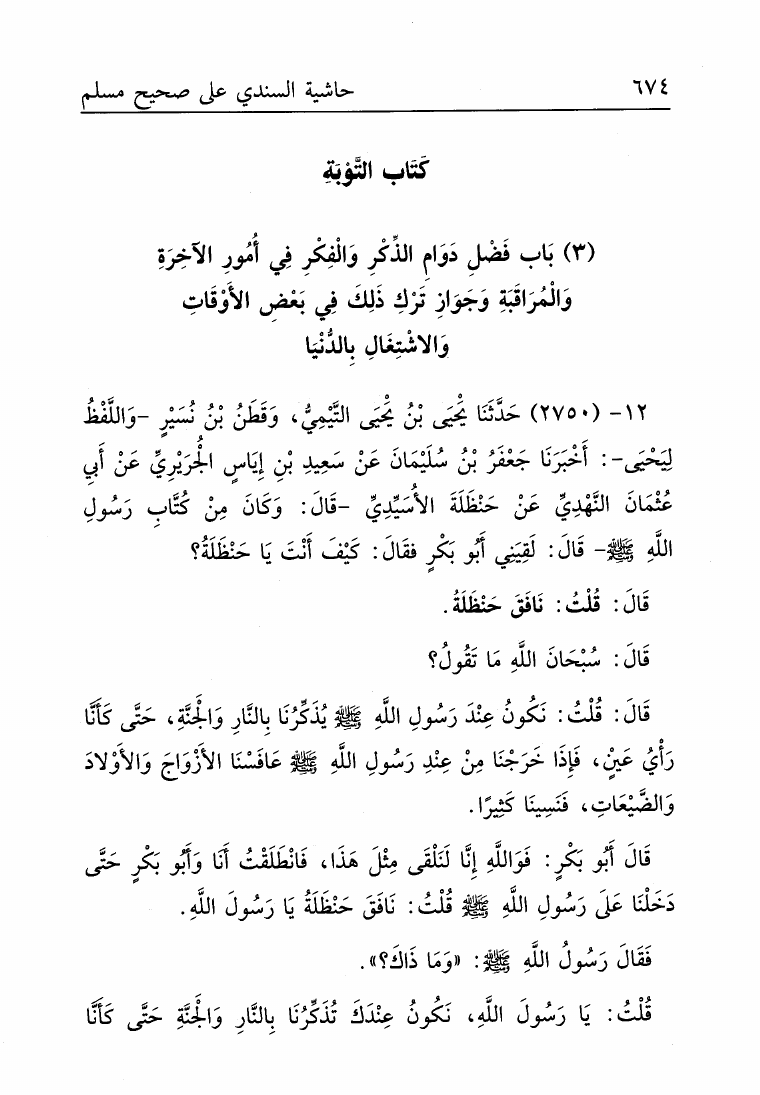 ٦٧٤ حاشية السندي على صحيح مسلم
كَتَاب التَّوْبَةِ
(٣) بَاب فَضْلِ دَوَامِ الذِّكْرِ وَالْفِكْرِ فِي أُمُورِ الآخِرَةِ
وَالْمُرَاقَبَةِ وَجَوَازِ تَرْكِ ذَلِكَ فِي بَعْضِ الأَوْقَاتِ
وَالاشْتِغَالِ بِالدُّنْيَا
١٢- (٢٧٥٠) حَدَّثَنَا يَحْيَى بْنُ يَحْيَى التَّيْمِيُّ، وَقَطَنُ بْنُ نُسَيْرٍ -وَاللَّفْظُ
لِيَحْيَى-: أَخْبَرَنَا جَعْفَرُ بْنُ سُلَيْمَانَ عَنْ سَعِيدِ بْنِ إِيَاسٍ الْجُرَيْرِيِّ عَنْ أَبِي
عُثْمَانَ النَّهْدِيِّ عَنْ حَنْظَلَةَ الأُسَيِّدِيِّ -قَالَ: وَكَانَ مِنْ كُتَّابِ رَسُولِ
اللَّهِ ﷺ- قَالَ: لَقِيَنِي أَبُو بَكْرٍ فقَالَ: كَيْفَ أَنْتَ يَا حَنْظَلَةُ؟
قَالَ: قُلْتُ: نَافَقَ حَنْظَلَةُ.
قَالَ: سُبْحَانَ اللَّهِ مَا تَقُولُ؟
قَالَ: قُلْتُ: نَكُونُ عِنْدَ رَسُولِ اللَّهِ ﷺ يُذَكِّرُنَا بِالنَّارِ وَالْجَنَّةِ، حَتَّى كَأَنَّا
رَأْيُ عَيْنٍ، فَإِذَا خَرَجْنَا مِنْ عِنْدِ رَسُولِ اللَّهِ ﷺ عَافَسْنَا الأَزْوَاجَ وَالأَوْلادَ
وَالضَّيْعَاتِ، فَنَسِينَا كَثِيرًا.
قَالَ أَبُو بَكْرٍ: فَوَاللَّهِ إِنَّا لَنَلْقَى مِثْلَ هَذَا، فَانْطَلَقْتُ أَنَا وَأَبُو بَكْرٍ حَتَّى
دَخَلْنَا عَلَى رَسُولِ اللَّهِ ﷺ قُلْتُ: نَافَقَ حَنْظَلَةُ يَا رَسُولَ اللَّهِ.
فَقَالَ رَسُولُ اللَّهِ ﷺ: «وَمَا ذَاكَ؟».
قُلْتُ: يَا رَسُولَ اللَّهِ، نَكُونُ عِنْدَكَ تُذَكِّرُنَا بِالنَّارِ وَالْجَنَّةِ حَتَّى كَأَنَّا